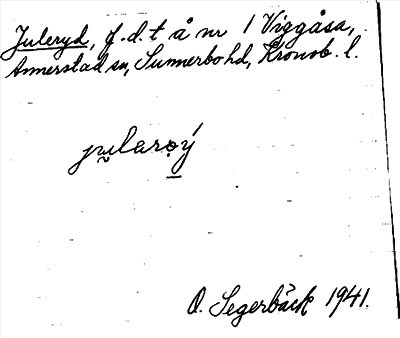 Juleryd, f.d.t å nr 1 Viggåsa,
Annerstad sn, Sunnerbo hd, Kronob. l.
jularọý
O. Segerbäck 1941.